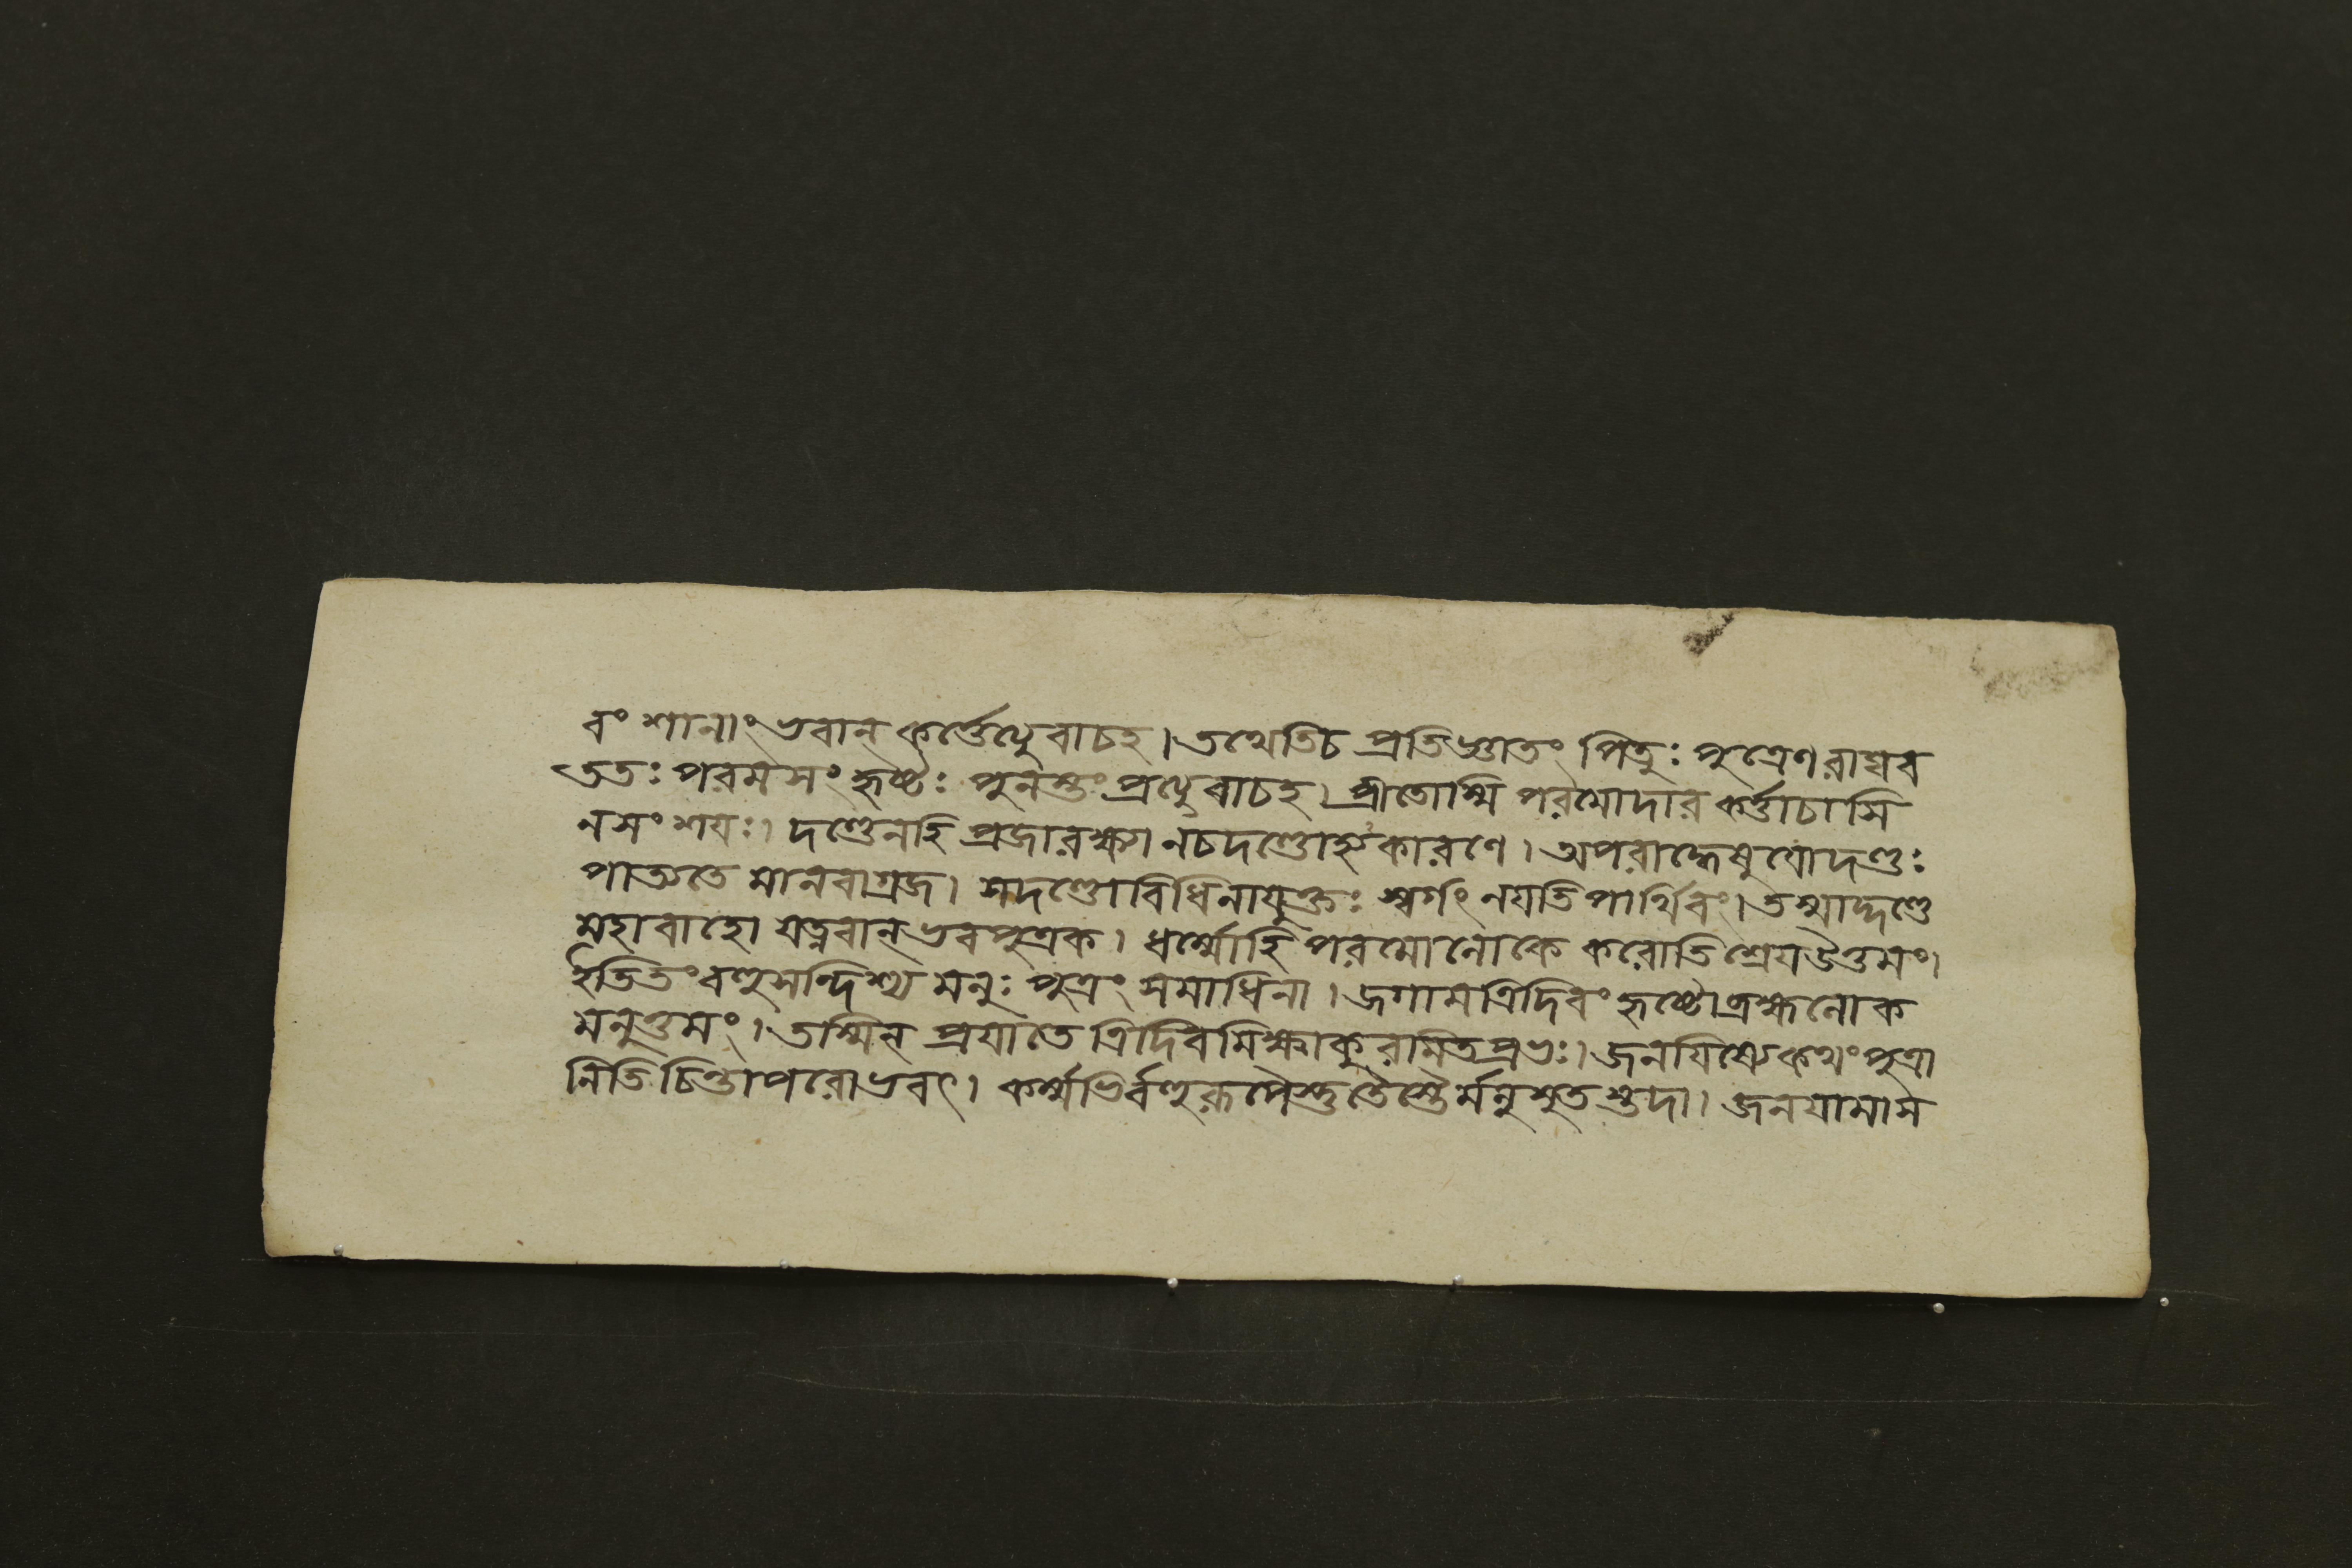 বংশানাং ভবান্ কর্ত্তেত্যুবাচহ। তথেতিচ প্রতিজ্ঞাতং পিতুঃ পুত্রেণ রাঘব
ততঃ পরমসংহৃষ্টঃ পুনস্তং প্রত্যুবাচহ। প্রীতোস্মি পরমোদার কর্ত্তাচাসি
নসংশযঃ। দণ্ডেনহি প্রজারক্ষ নচদণ্ডোহ্যকারণে। অপরাদ্ধেষুযোদণ্ডঃ
পাত্যতে মানবাগ্রজ। সদণ্ডোবিধিনাযুক্তঃ স্বর্গং নযতি পার্থিবং। তস্মাদ্দণ্ডে
মহাবাহো যত্নবান্ ভবপুত্রক। ধর্ম্মোহি পরমোলোকে করোতি শ্রেযউত্তমং।
ইতিতংবহুসন্দিশ্য মনুঃ পুত্রং সমাধিনা। জগামত্রিদিবং হৃষ্টোব্রহ্মলোক
মনুত্তমং। তস্মিন্ প্রযাতে ত্রিদিবমিক্ষ্বাকুরামিতপ্রভঃ। জনযিষ্যেকথং পুত্রা
নিতি চিন্তাপরোভবৎ। কর্ম্মভির্বহুরূপৈস্তুতৈস্তৈর্মনুসুতস্তদা। জনযামাস